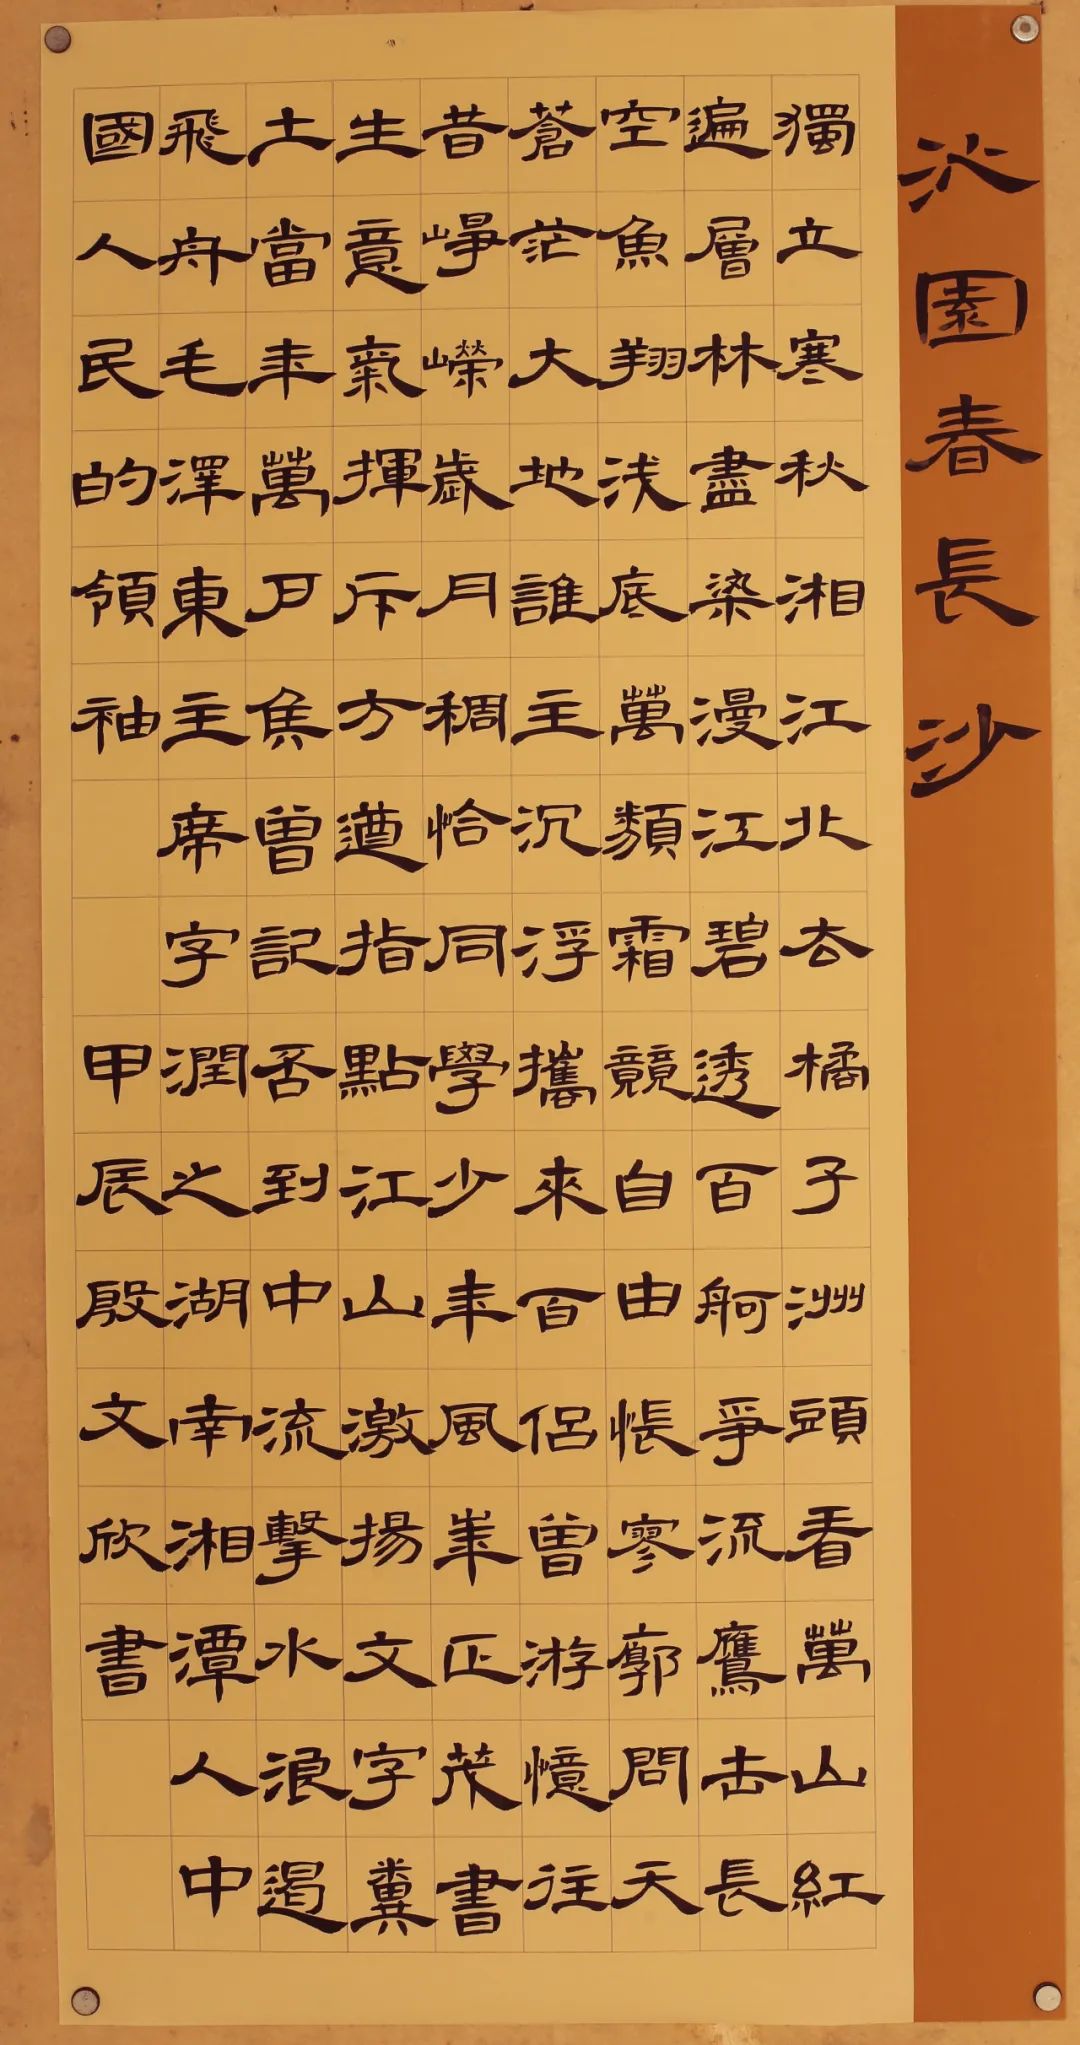 沁園春長沙
獨立寒秋湘江北去橘子洲頭看萬山紅
遍層林盡染漫江碧透百舸爭流鷹击長
空魚翔浅底萬類霜競自由悵寥廓問天
蒼茫大地誰主沉浮攜來百侣曾游憶往
昔崢嶸歲月稠恰同學少年風華正茂書
生意氣揮斥方遒指點江山激揚文字糞
土當年萬戶侯曾記否到中流擊水浪遏
飛舟毛澤東主席字潤之湖南湘潭人中
國人民的領袖 甲辰殷文欣書